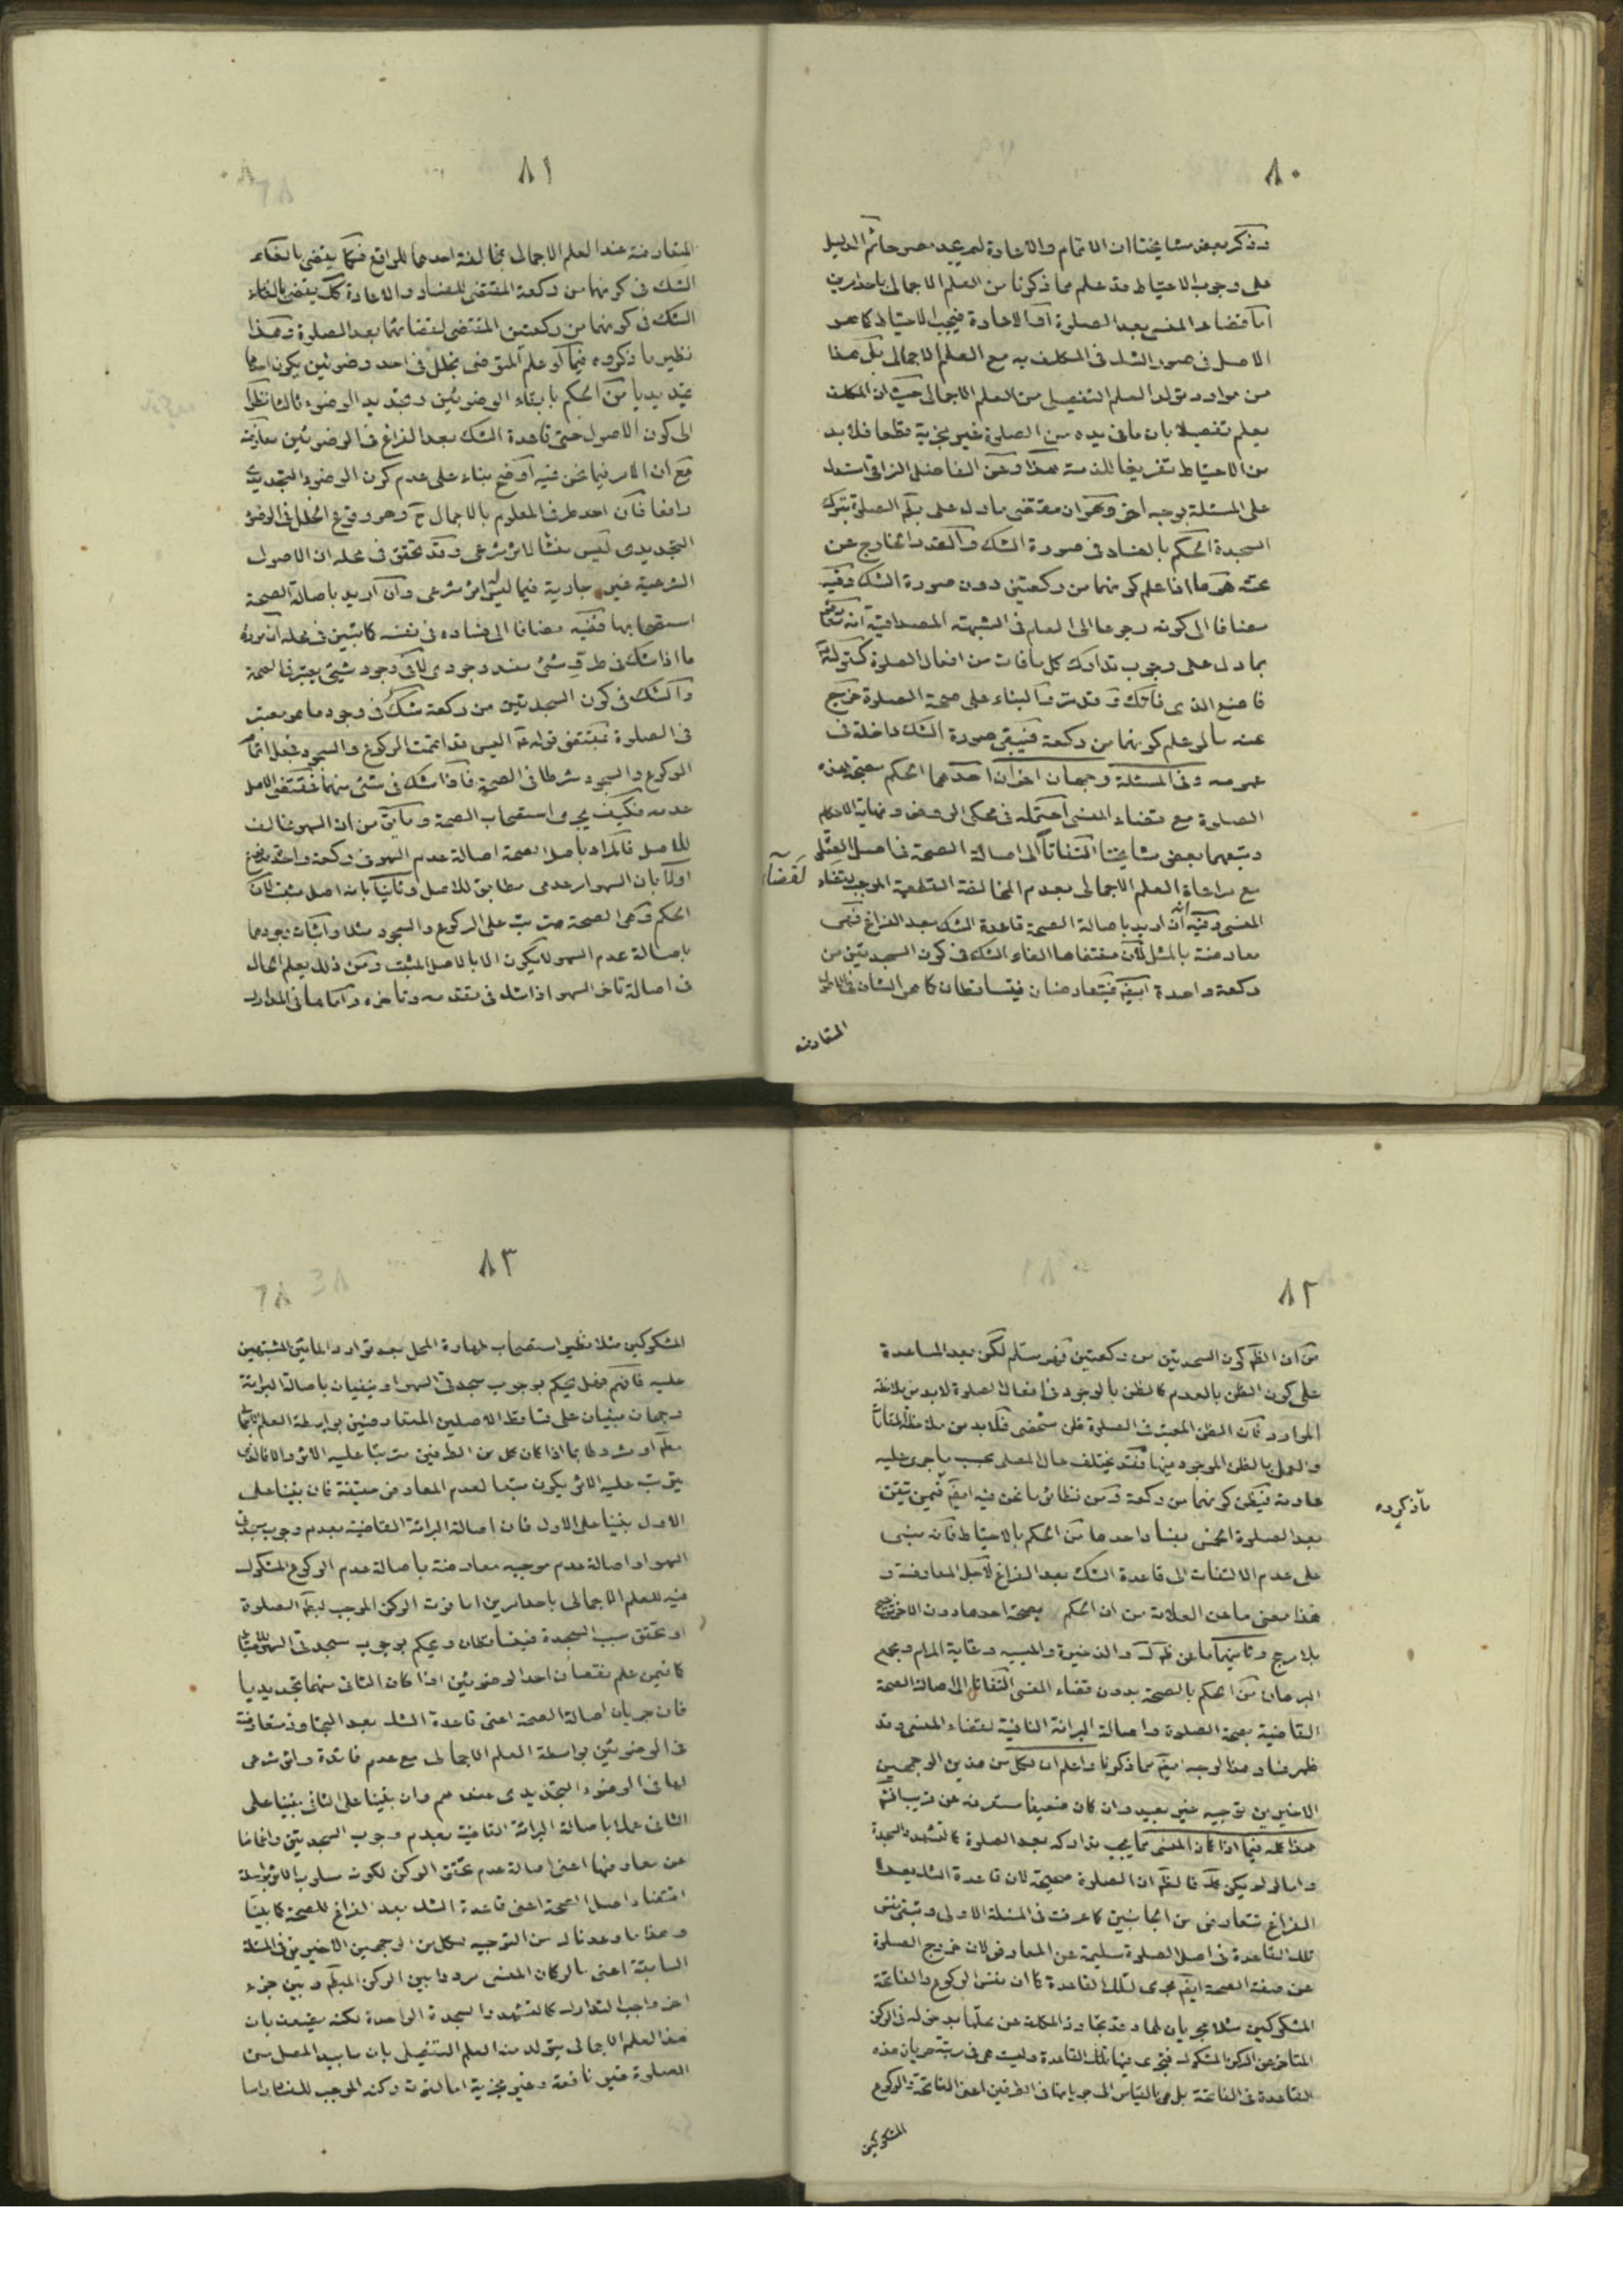 ٨٠
وذكر بعض مشايخنا ان الاتمام والاعادة لم يجب
على وجوب الاحتياط قد علم مما ذكرنا من العلم الاجمالى باحد امرين
اما قضاء المنسى بعد الصلوة او الاعادة فيجب الاحتياط كما هو
الاصل فى صور الشك فى المكلف به مع العلم الاجمالى بل هذا
من موارد تولد العلم التفصيلى من العلم الاجمالى حيث ان المكلف
يعلم تفصيلا بان ما فى يده من الصلوة غير مجزية قطعا فلا بد
من الاحتياط تفريغا للذمة هذا وعن الفاضل النراقى استدل
على المسئلة بوجه اخر وهو ان مقتضى ما دل على بطلان الصلوة بترك
السجدة الحكم بالفساد فى صورة الشك والقدر الخارج عن
تحته هو ما اذا علم كونهما من ركعتين دون صورة الشك وفيه
مضافا الى كونه رجوعا الى العام فى الشبهة المصداقية انه
بما دل على وجوب تدارك كل ما فات من افعال الصلوة كقوله
فاصنع الذى فاتك و والبناء على صحة الصلوة خرج
عنه ما لو علم كونهما من ركعة فيبقى صورة الشك داخلة فى
عمومه وفى المسئلة وجهان اخران احدهما الحكم بصحة هذه
الصلوة مع قضاء المنسى احتمله فى محكى الروض ونهاية الاحكام
وتبعهما بعض مشايخنا التفاتا الى اصالة الصحة فى اصل العمل
مع مراعاة العلم الاجمالى بعدم المخالفة القطعية الموجب لقضاء
لقضاء
المنسى وفيه انه ان اريد باصالة الصحة قاعدة الشك بعد الفراغ فهى
معارضة بالمثل لان مقتضاها الغاء الشك فى كون السجدتين من
ركعة واحدة ايضا فيتعارضان فيتساقطان كما هو الشان فى
المتعارضه
٨١
المتعارضة عند العلم الاجمالى بمخالفة احدهما للواقع فكما يقضى بالغاء
الشك فى كونهما من ركعة المقتضى للفساد والاعادة كك يقضى بالغاء
الشك فى كونهما من ركعتين المقتضى لقضائهما بعد الصلوة وهذا
نظير ما ذكروه فيما لو علم المتوضى بخلل فى احد وضوئين يكون احدهما
تجديديا من الحكم بابقاء الوضوئين وتجديد الوضوء ثالثا نظرا
الى كون الاصول حتى قاعدة الشك بعد الفراغ فى الوضوئين معارضة
مع ان الامر فيما نحن فيه اوضح بناء على عدم كون الوضوء التجديدى
رافعا فان احد طرفى المعلوم بالاجمال ح وهو وقوع الخلل فى الوضوء
التجديدى ليس منشأ لاثر شرعى وقد تحقق فى محله ان الاصول
الشرعية غير جارية فيما ليس له اثر شرعى وان اريد باصالة الصحة
استصحابها ففيه مضافا الى فساده فى نفسه كما تبين فى محله ان مورده
ما اذا شك فى طرو شئ مفسد وجودى لا فى وجود شئ يعتبر فى الصحة
والشك فى كون السجدتين من ركعة شك فى وجود ما هو معتبر
فى الصلوة فمقتضى قوله ع اليس قد اتممت الركوع والسجود فجعل اتمام
الركوع والسجود شرطا فى الصحة فاذا شك فى شئ منهما فمقتضى الاصل
عدمه فكيف يجرى استصحاب الصحة وما يق من ان السهو مخالف
للاصل فالمراد باصل الصحة اصالة عدم السهو فى ركعة واحدة
اولا بان السهو ارعدمى مطابق للاصل وثانيا بانه اصل مثبت لان
الحكم وهى الصحة مترتب على الركوع والسجود مثلا واثبات وجودهما
باصالة عدم السهو لا يكون الا بالاصل المثبت ومن ذلك يعلم الحال
فى اصالة تاخر السهو اذا شك فى تقدمه وتأخره واما ما فى المدارك
٨٢
من ان الظ كون السجدتين من ركعتين فهو مسلم لكن بعد المساعدة
على كون الظن بالعدم كالظن بالوجود فى افعال الصلوة لا بد من ملاحظة
الموارد فان الظن المعتبر فى الصلوة ظن شخصى فلا بد من ملاحظة المقامات
والعمل بالظن الموجود فيها فقد يختلف حال المصلى بحسب ما جرى عليه
عادته فيظن كونهما من ركعة ومن نظائر ما نحن فيه ايضا فيمن تيقن
مآ ذكروه
بعد الصلوة الخمس بفساد احدها من الحكم بالاحتياط فانه مبنى
على عدم الالتفات الى قاعدة الشك بعد الفراغ لاجل المعارضة و
هذا معنى ما عن العلامة من ان الحكم بصحة احدها دون الاخر ترجيح
بلا مرجح وثانيهما ما عن ظ ك والذخيرة والحبيبيه وغاية المرام ومجمع
البرهان من الحكم بالصحة بدون قضاء المنسى التفاتا الى اصالة الصحة
القاضية بصحة الصلوة واصالة البرائة النافية لقضاء المنسى وقد
ظهر فساد هذا الوجه ايضا مما ذكرنا واعلم ان لكل من هذين الوجهين
الاخيرين توجيه غير بعيد وان كان ضعيفا ستعرفه عن قريب
هذا كله فيما اذا كان المنسى مما يجب تداركه بعد الصلوة كالتشهد والسجدة
واما لو لم يكن كك فالظ ان الصلوة صحيحة لان قاعدة الشك بعد
الفراغ تتعارض من الجانبين كما عرفت فى المسئلة الاولى وتبقى نفس
تلك القاعدة فى اصل الصلوة سليمة عن المعارض لان خروج الصلوة
عن صفة الصحة ايضا مجرى لتلك القاعدة كما ان نفس الركوع والفاتحة
المشكوكين مثلا مجريان لها وقد تجاوز المكلف عن محلها بدخوله فى الركن
المتاخر عن الركن المشكوك فيجرى فيها تلك القاعدة وليست هى فى رتبة جريان هذه
القاعدة فى الفاتحة بل هى بالقياس الى جريانها فى الطرفين اعنى الفاتحة والركوع
المشكوكين
٨٣
المشكوكين مثلا نظير استصحاب طهارة المحل بعد توارد المائين المشتبهين
عليه فافهم وهل يحكم بوجوب سجدتى السهو او ينفيان باصالة البرائة
وجهان مبنيان على تساقط الاصلين المتعارضين بواسطة العلم
مطلقا او مشروطا بما اذا كان كل من الطرفين مترتبا عليه الاثر والا فالذى
يترتب عليه الاثر يكون متبعا لعدم المعارض حقيقة فان بنينا على
الاول بنينا على الاول فان اصالة البرائة القاضية بعدم وجوب سجدتى
السهو او اصالة عدم موجبه معارضة باصالة عدم الركوع المشكوك
فيه للعلم الاجمالى باحد امرين اما فوت الركن الموجب لبطلان الصلوة
او تحقق سبب السجدة فيتساقطان ويحكم بوجوب سجدتى السهو
كما فيمن علم بنقصان احد الوضوئين اذا كان الثانى منهما تجديديا
فان جريان اصالة الصحة اعنى قاعدة الشك بعد التجاوز متعارضة
فى الوضوئين بواسطة العلم الاجمالى مع عدم فائدة واثر شرعى
لها فى الوضوء التجديدى عندهم وان بنينا على الثانى بنينا على
الثانى عملا باصالة البرائة القاضية بعدم وجوب السجدتين واغماضا
عن معارضها اعنى اصالة عدم تحقق الركن لكونه مسلوب الاثر بواسطة
اقتضاء اصل الصحة اعنى قاعدة الشك بعد الفراغ للصحة كما بينا
وهذا ما وعدناك من التوجيه لكل من الوجهين الاخيرين فى المسئلة
السابقة اعنى ما لو كان المنسى مرددا بين الركن المبطل وبين جزء
اخر واجب التدارك كالتشهد والسجدة الواحدة لكنه يضعف بان
هذا العلم الاجمالى يتولد منه العلم التفصيلى بان ما بيد المصلى من
الصلوة غير نافعة وغير مجزية اما لفوت ركنه الموجب للفساد واما